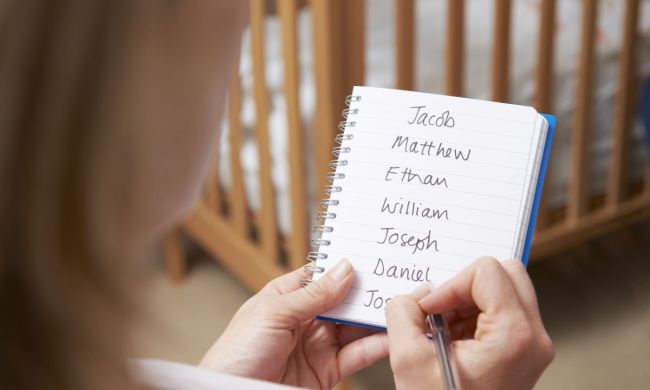 Jacob
Matthew
Ethan
William
Joseph
Daniel